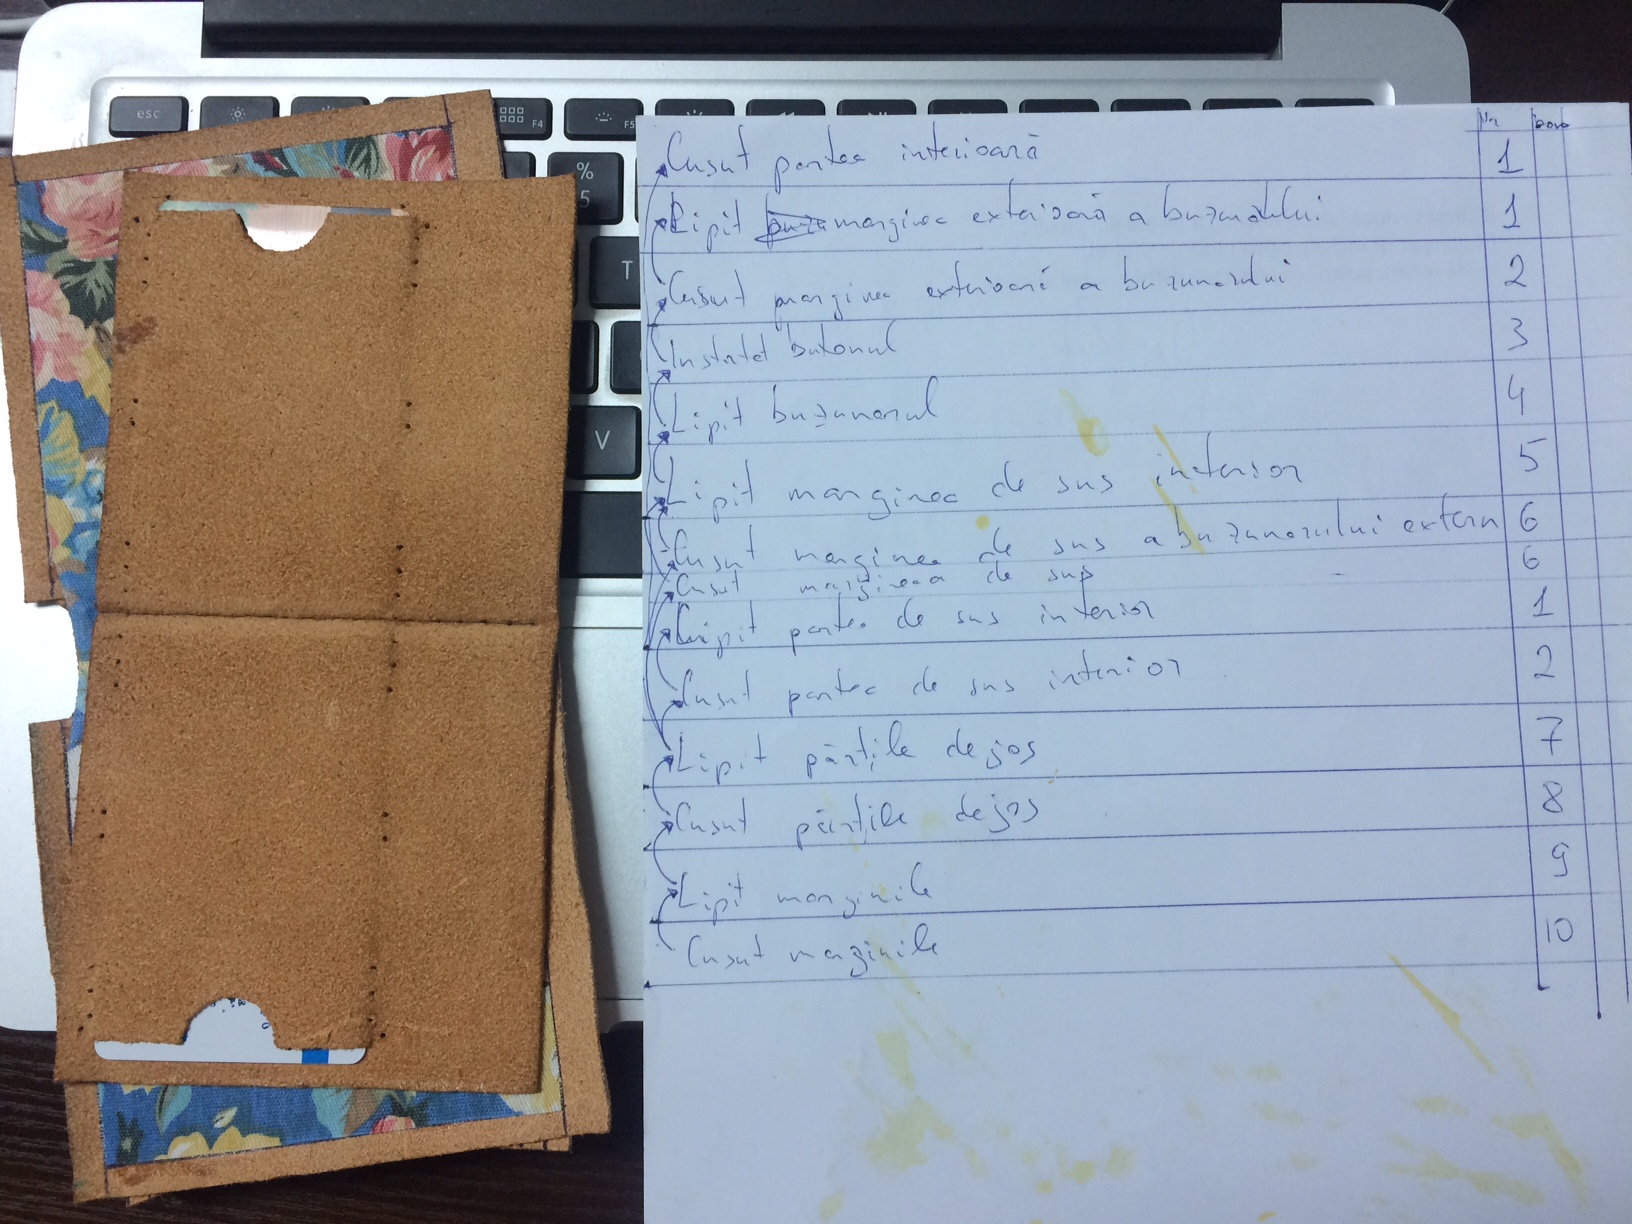 Nr
Cusut partea interioară 1
Lipit marginea exterioară a buzunarului 1
Cusut marginea exterioară a buzunarului 2
Instalat butonul 3
Lipit buzunarul 4
Lipit marginea de sus interior 5
Cusut marginea de sus a buzunarului extern 6
Cusut marginea de sus 6
Lipit partea de sus interior 1
Cusut partea de sus interior 2
Lipit părțile de jos 7
Cusut părțile de jos 8
Lipit marginile 9
Cusut marginile 10
esc
F4
F5
%
5
T
V